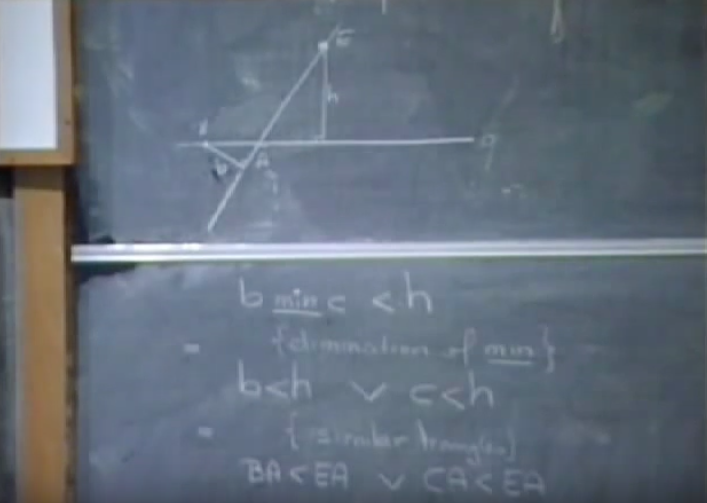 E
h
q
A
b
b min c < h
= {elimination of min}
b<h ∨ c<h
= {similar triangles}
BA<EA ∨ CA<EA